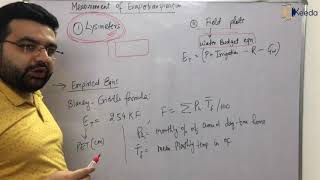 Measurement of Evapotranspiration
① Lysimeters
② Field plots
Water Budget eqn:
E_T = (P + Irrigation - R - GW)
→ Empirical Eqns
Blaney-Criddle formula:
E_T = 2.54 K F
F = Σ P_h T̄_f /100
PET (cm)
P_h = monthly % of annual day-time hours
T̄_f = mean monthly temp in °F
Ekeeda